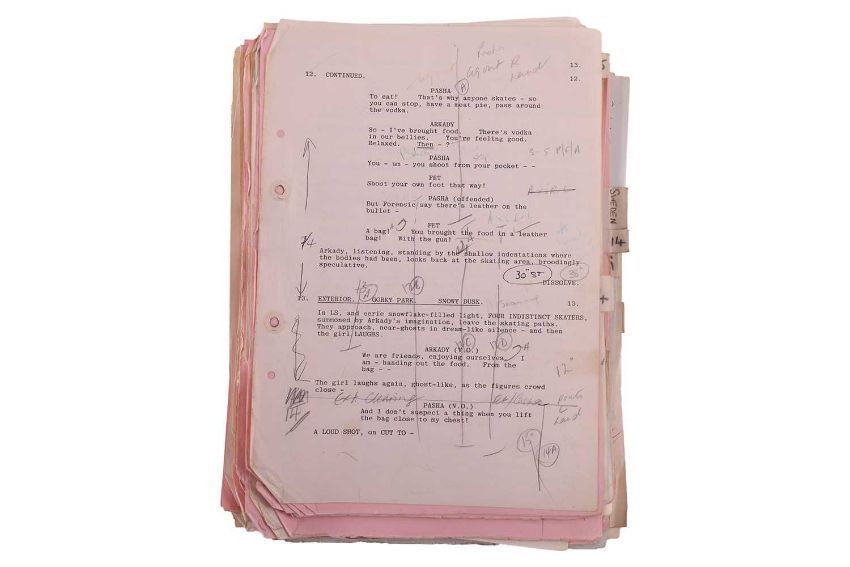 Pasha
13.
12. CONTINUED.
12.
A
PASHA
To eat! That's why anyone skates - so
you can stop, have a meat pie, pass around
the vodka.
ARKADY
So - I've brought food. There's vodka
in our bellies. You're feeling good.
Relaxed. Then - ?
PASHA
You - un - you shoot from your pocket - -
FET
Shoot your own foot that way!
PASHA (offended)
But Forensic say there's leather on the
bullet -
FET
A bag! You brought the food in a leather
bag! With the gun!
Arkady, listening, standing by the shallow indentations where
the bodies had been, looks back at the skating area, broodingly
speculative.
30" ST
35"
DISSOLVE.
13. EXTERIOR. GORKY PARK. SNOWY DUSK. 13.
In LS, and eerie snowflake-filled light, FOUR INDISTINCT SKATERS,
summoned by Arkady's imagination, leave the skating paths.
They approach, near-ghosts in dream-like silence - and then
the girl LAUGHS.
C
D
ARKADY (V.O.)
We are friends, enjoying ourselves. I
am - handing out the food. From the
bag - -
12"
The girl laughs again, ghost-like, as the figures crowd
close -
Ext Clearing
PASHA (V.O.)
And I don't suspect a thing when you lift
the bag close to my chest!
14
A LOUD SHOT, on CUT TO -
14A
SWEDEN
14